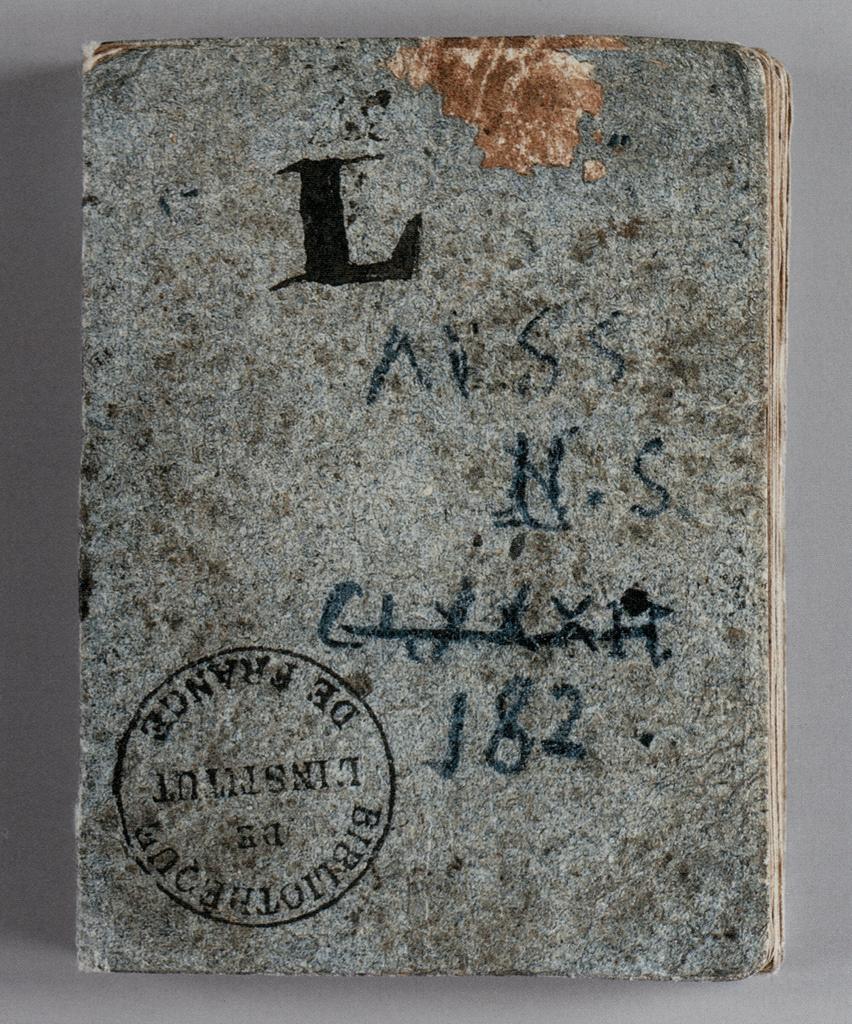 L
MSS
N.S
CLXXXII
182.
BIBLIOTHEQUE
DE
L'INSTITUT
DE FRANCE